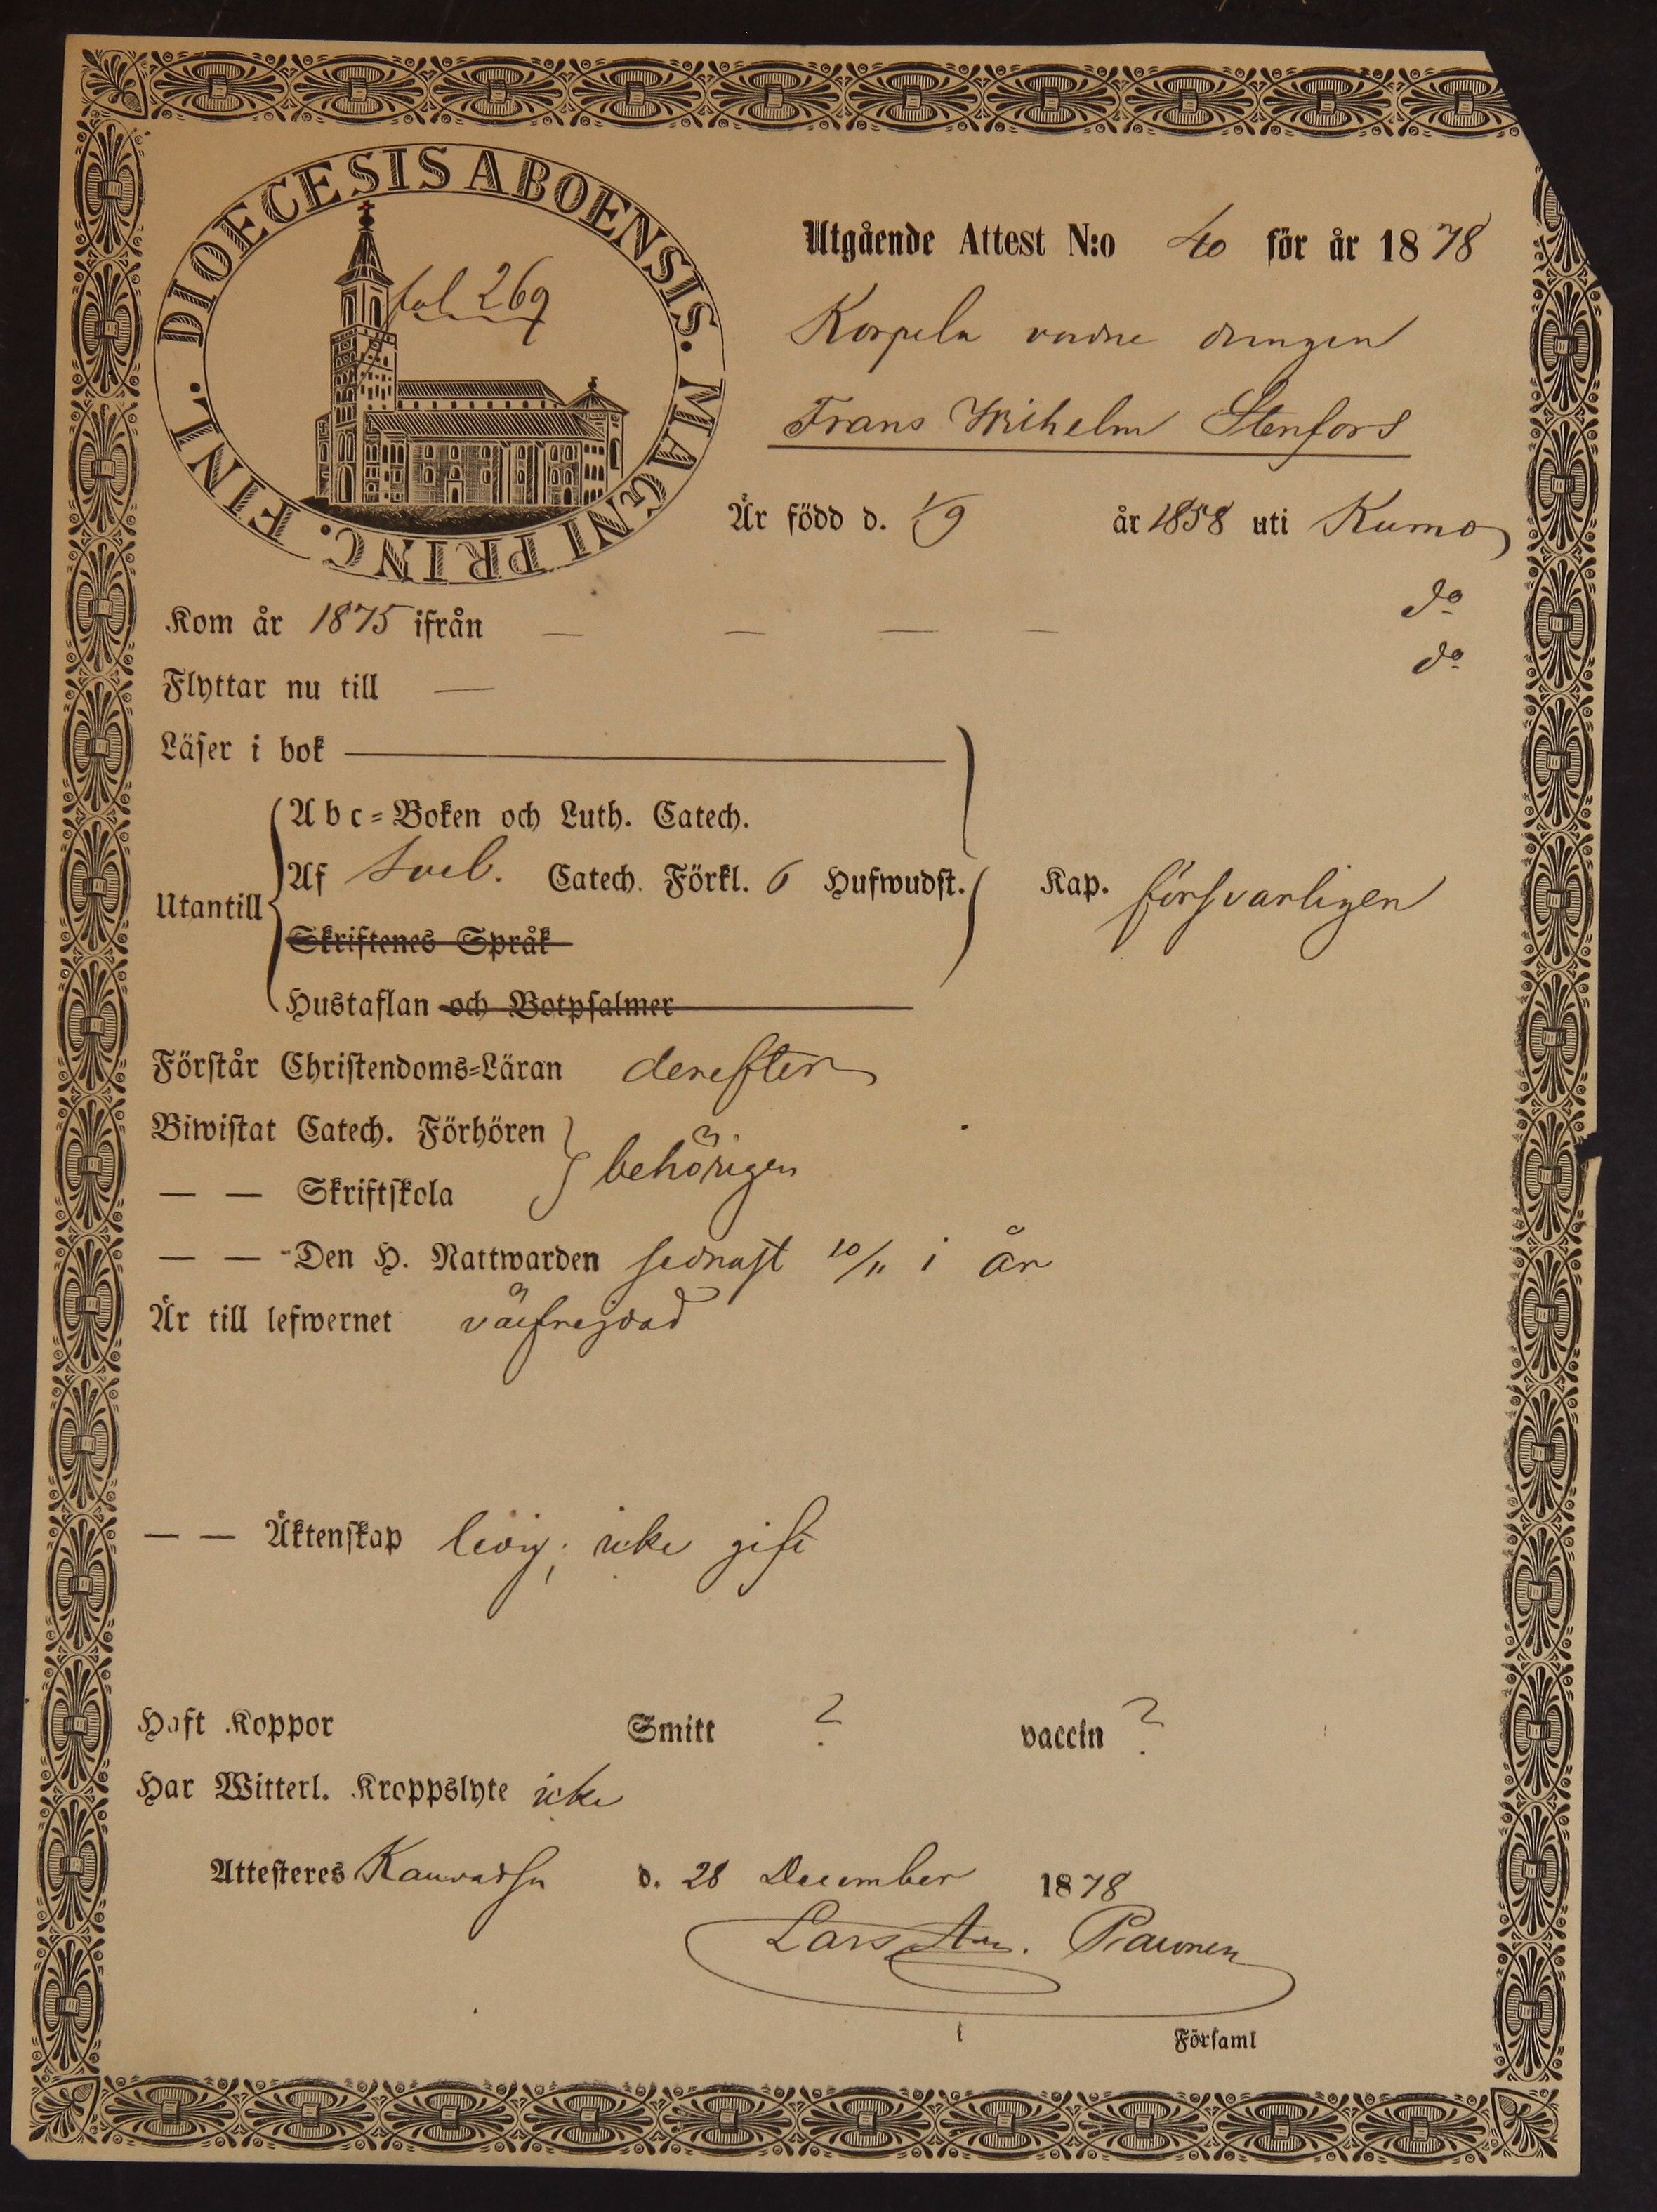 DIOECESIS ABOENSIS. MAGNI PRINC. FINL.
fol 269
Utgående Attest N:o 40 för år 1878
Korpela drengen
Frans Wilhelm Stenfors
Är född d. 1/9 år 1858 uti Kumo
Kom år 1875 ifrån — — — — do
Flyttar nu till — do
Läser i bok
Utantill
Abc-Boken och Luth. Catech.
Af Sveb. Catech. Förkl. 6 Hufwudst. Kap. försvarligen
Skriftenes Språk
Hustaflan och Botpsalmer
Förstår Christendoms-Läran derefter
Biwistat Catech. Förhören
behörigen
— — Skriftskola
— — Den H. Nattwarden sednast 10/11 i år
Är till lefwernet välfrejdad
— — Äktenskap ledig; icke gift
Haft Koppor Smitt ? vaccin ?
Har Witterl. Kroppslyte icke
Attesteres Kauvatsa d. 28 December 1878
Lars
i Församl